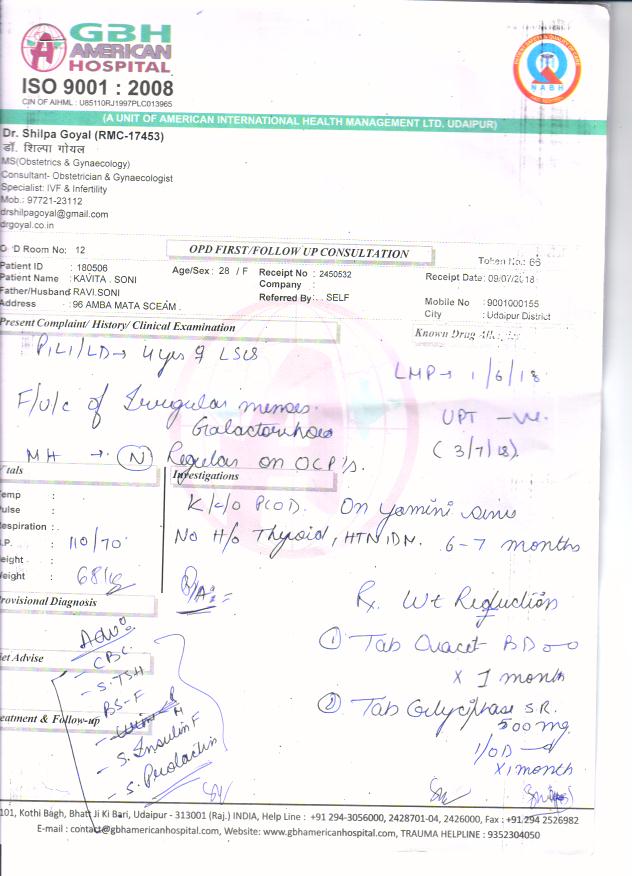 GBH
AMERICAN
HOSPITAL
ISO 9001 : 2008
CIN OF AIHML : U85110RJ1997PLC013965
NABH
(A UNIT OF AMERICAN INTERNATIONAL HEALTH MANAGEMENT LTD. UDAIPUR)
Dr. Shilpa Goyal (RMC-17453)
डॉ. शिल्पा गोयल
MS(Obstetrics & Gynaecology)
Consultant- Obstetrician & Gynaecologist
Specialist: IVF & Infertility
Mob.: 97721-23112
drshilpagoyal@gmail.com
drgoyal.co.in
D Room No: 12
OPD FIRST/FOLLOW UP CONSULTATION
Token No.: 66
Patient ID : 180506
Age/Sex : 28 / F
Receipt No : 2450532
Receipt Date: 09/07/2018
Patient Name : KAVITA . SONI
Company :
Father/Husband RAVI.SONI
Referred By: . SELF
Mobile No : 9001000155
Address : 96 AMBA MATA SCEAM .
City : Udaipur District
Present Complaint/ History/ Clinical Examination
Known Drug
P1L1/LD → 4 yrs LSCS
LMP → 1/6/18
F/U/C of Irregular menses.
Galactorrhoea
UPT -ve.
(3/7/18).
MH → (N) Regular on OCP's.
itals
Investigations
K/C/O PCOD. On Yamini since
6-7 months
No H/o Thyroid, HTN/DM.
emp :
Pulse :
espiration : .
.P. : 110/70
eight :
Weight : 68kg
rovisional Diagnosis
Rx. Wt Reduction
Adv:
- CBC
① Tab Ovacet BD
x 1 month
iet Advise
- S.TSH
BS-F
② Tab Glyciphase SR.
500 mg
1/OD →
x 1 month
eatment & Follow-up
- S. Insulin F
- S. Prolactin
101, Kothi Bagh, Bhatt Ji Ki Bari, Udaipur - 313001 (Raj.) INDIA, Help Line : +91 294-3056000, 2428701-04, 2426000, Fax : +91 294 2526982
E-mail : contact@gbhamericanhospital.com, Website: www.gbhamericanhospital.com, TRAUMA HELPLINE : 9352304050